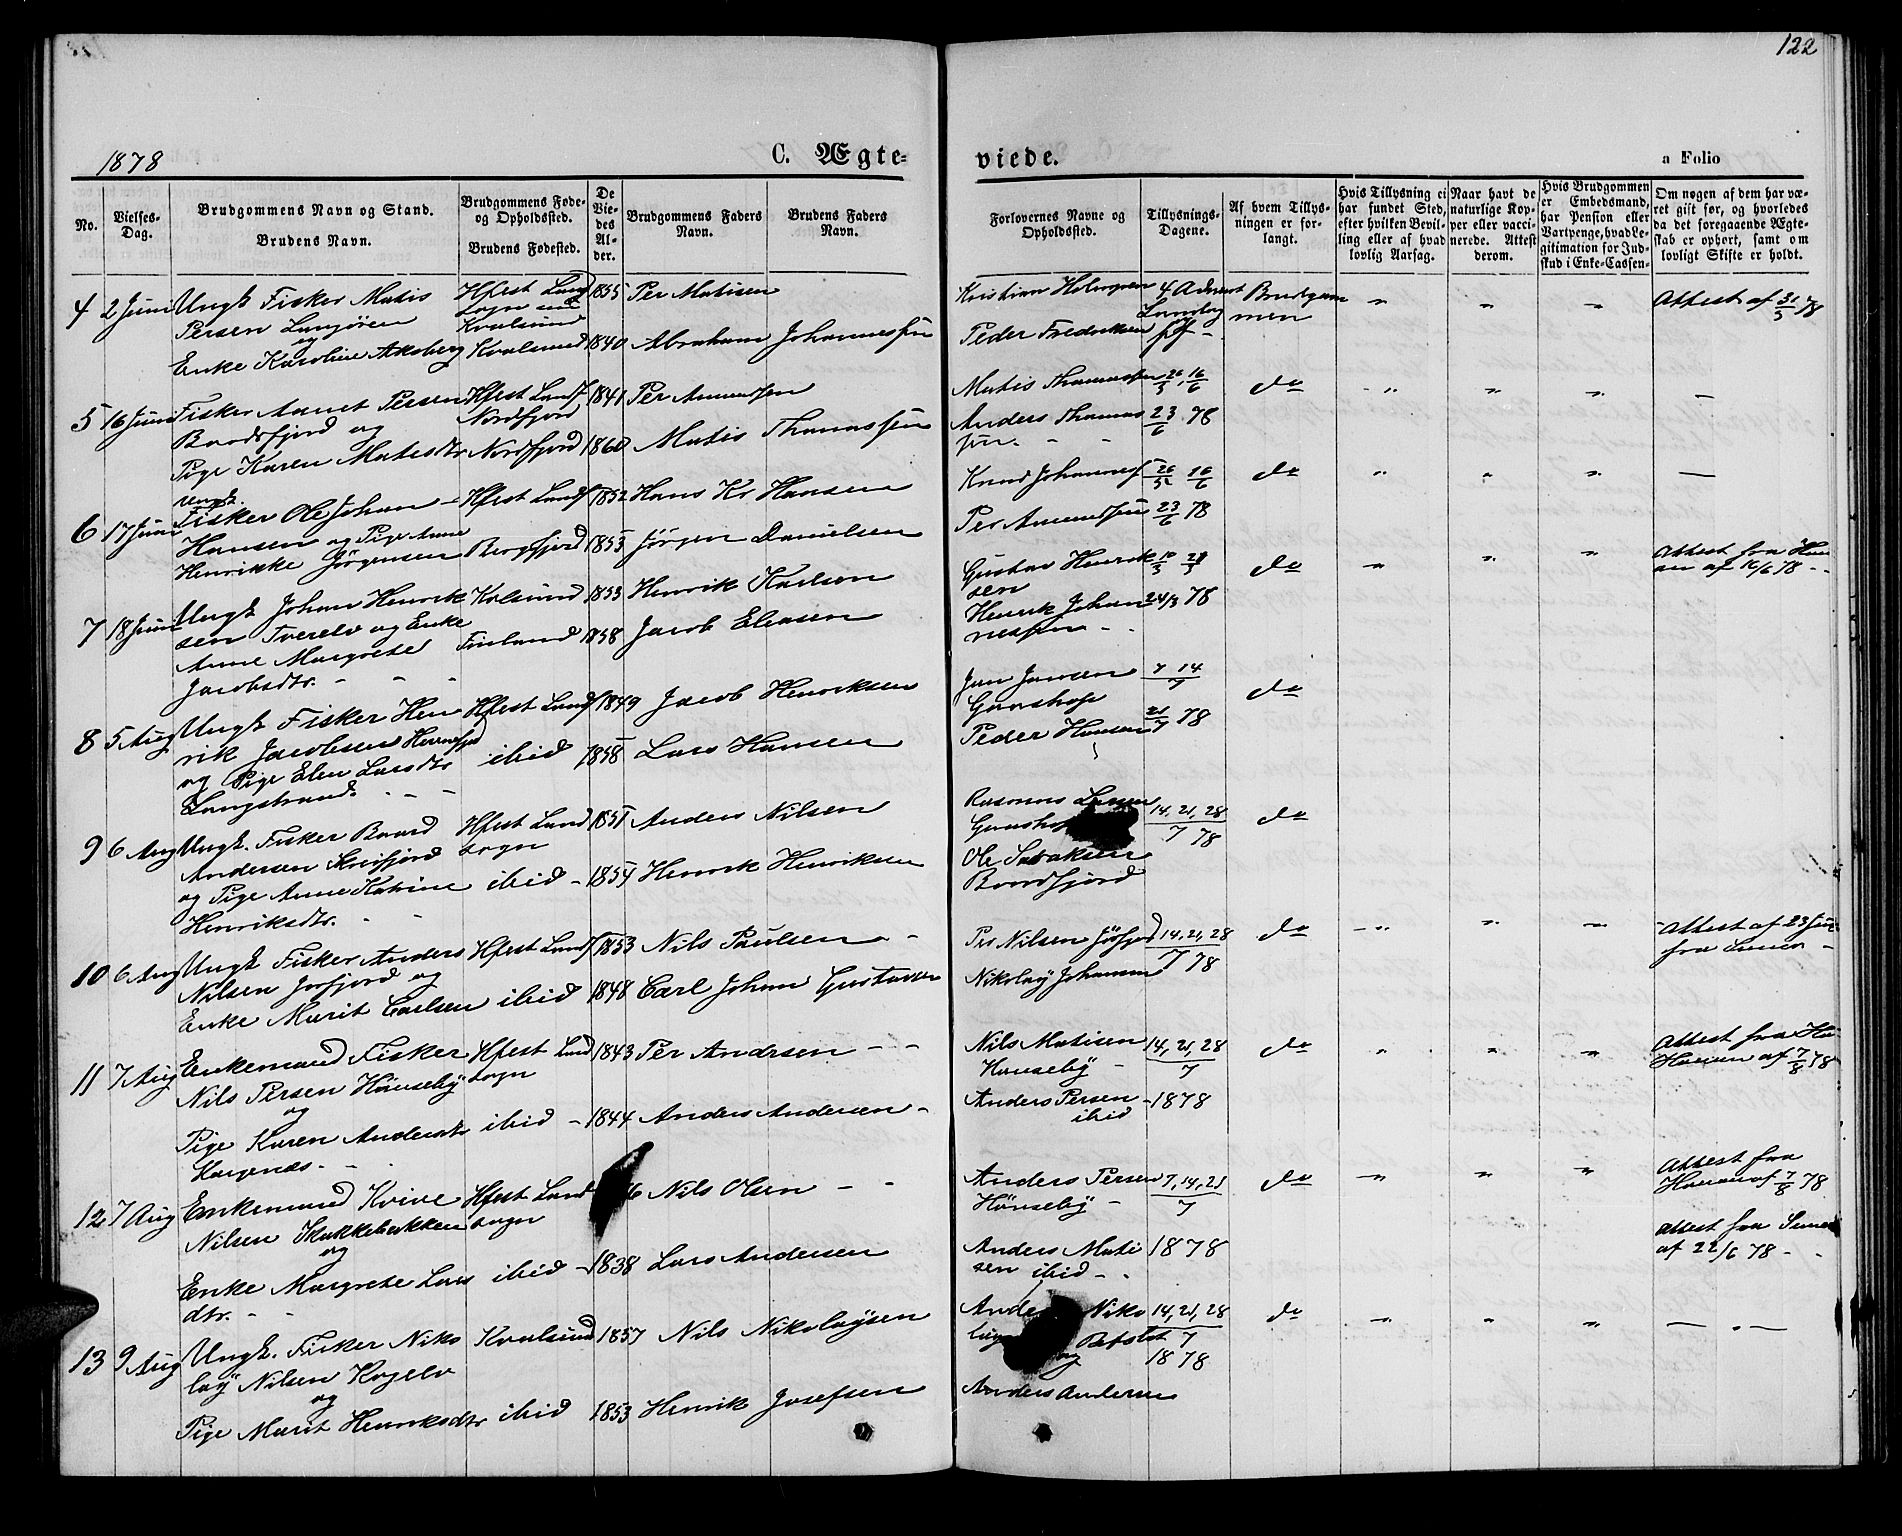 122
1878
C. Ægteviede.
a Folio
No.
Vielses-Dag.
Brudgommens Navn og Stand.
Brudens Navn.
Brudgommens Føde- og Opholdssted.
Brudens Fødested.
De Viedes Alder.
Brudgommens Faders Navn.
Brudens Faders Navn.
Forlovernes Navne og Opholdssted.
Tillysnings-Dagene.
Af hvem Tillysningen er forlangt.
Hvis Tillysning ei har fundet Sted, efter hvilken Bevilling eller af hvad lovlig Aarsag.
Naar havt de naturlige Kopper eller vaccinerede. Attest derom.
Hvis Brudgommen er Embedsmand, har Pension eller Vartpenge, hvad Legitimation for Indskud i Enke-Cassen.
Om nogen af dem har været gift før, og hvorledes da det foregaaende Ægteskab er ophørt, samt om lovligt Skifte er holdt.
4 2 Juni Ungk Fisker Matis Hfest Land 1855 Per Matisen
Persen sogn Kvalsund
og
Enke Karoline Kvalsund 1840 Abraham Johannessen
Kristian Holmgren 4 Advent Brudgommen " " " Attest af 31/5 78
Peder Fredriksen
5 16 Juni Fisker Persen Hfest Lands 1841 Per Amundsen
Baadsfjord og Nordfjord
Pige Karen Matisdtr Nordfjord 1860 Matis Thomassen
Matis Thomassen 26/5, 16/6 do " " " —
Anders Thomassen 23/6 78
6 17 Juni Ungk. Fisker Ole Johan Hfest Lands 1852 Hans Kr Hansen
Hansen og Pige Anne
Henrikke Jørgensen Bergsfjord 1853 Jørgen Danielsen
Knud Johannes 26/5 16/6 do " " " —
Per Amundsen 23/6 78
7 18 Juni Ungk Johan Henriksen Kvalsund 1853 Henrik Karlsen
Tverelv og Enke
Anne Margrete Finland 1858 Jacob Eliasen
Jacobsdtr. - - -
Gustav Henriksen 10/3 do " " " Attest fra
af 16/6 78
Henrik Johannessen 24/3 78
8 5 Aug Ungk Fisker Henrik Hfest Lands 1849 Jacob Henriksen
Jacobsen
og Pige Elen Larsdtr ibid 1858 Lars Hansen
Langstrand. - - -
Jan Jansen 7 14/7 do
Peder Hansen 21/7 78
9 6 Aug Ungk. Fisker Baard Hfest Land 1851 Anders Nilsen
Andersen sogn
og Pige Anne Katrine ibid 1854 Henrik Henriksen
Henriksdtr.
Rasmus Larsen 14, 21, 28/7 78 do
Ole
10 6 Aug Ungk Fisker Anders Hfest Lands 1853 Nils Paulsen
Nilsen Jøfjord og
Enke Marit Carlsen ibid 1848 Carl Johan Gustavsen
Per Nilsen Jøfjord 14, 21, 28 do " " " Attest af 23 Juni
fra
Nikolay Johansen 7 78
11 7 Aug Enkemand Fisker Hfest Land 1843 Per Andersen
Nils Persen Hønseby sogn
og
Pige Karen Andersdtr ibid 1844 Anders Andersen
Nils Matisen 14, 21, 28/7 do " " " Attest fra
Hønseby af 7/8 78
Anders Persen 1878
ibid
12 7 Aug Enkemand Kvive Hfest Land 6 Nils Olsen
Nilsen Skakkebakken sogn
og
Enke Margrete Larsdtr. ibid 1838 Lars Andersen
Anders Persen 7, 14, 21/7 do " " " Attest fra
Hønseby af 7/8 78
Anders Matisen 1878 Attest fra
ibid af 22/6 78
13 9 Aug Ungk. Fisker Nikolay Kvalsund 1857 Nils Nikolaysen
Nilsen
og
Pige Marit Henriksdtr ibid 1853 Henrik Josefsen
Niko 14, 21, 28/7 do " " " — . —
1878
Anders Andersen